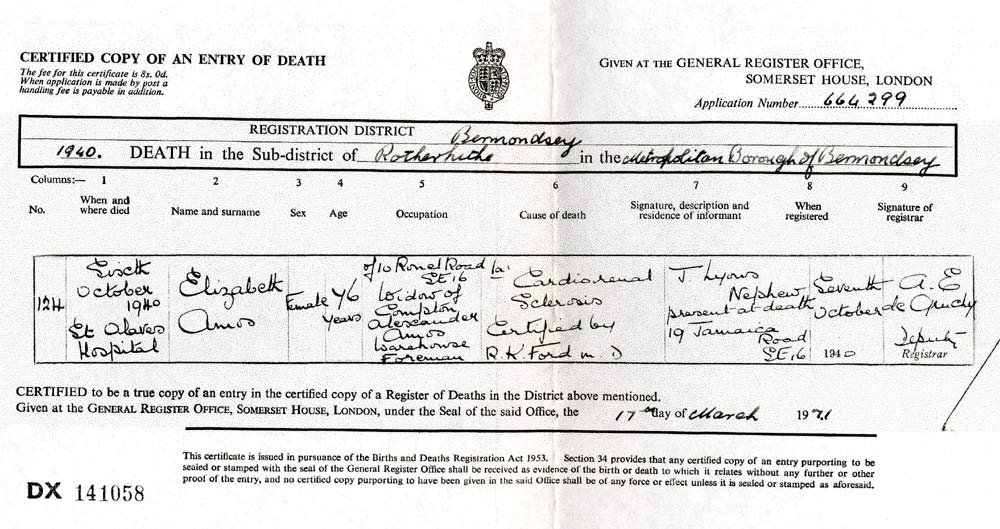 CERTIFIED COPY OF AN ENTRY OF DEATH
The fee for this certificate is 8s. 0d.
When application is made by post a
handling fee is payable in addition.
GIVEN AT THE GENERAL REGISTER OFFICE,
SOMERSET HOUSE, LONDON
Application Number 664299
REGISTRATION DISTRICT Bermondsey
1940. DEATH in the Sub-district of Rotherhithe in the Metropolitan Borough of Bermondsey
Columns:— 1 2 3 4 5 6 7 8 9
No. When and where died Name and surname Sex Age Occupation Cause of death Signature, description and residence of informant When registered Signature of registrar
124
Sixth
October
1940
St Olaves
Hospital
Elizabeth
Amos
Female
76
years
of 10 Road
SE16
Widow of
Compton
Alexander
Amos
Warehouse
Foreman
1a.
Cardiorenal
Sclerosis
Certified by
R.K. Ford M.D
J. Lyons
Nephew
present at death
19 Jamaica
Road
SE,16
Seventh
October
1940
A. E
de Gruchy
Deputy
Registrar
CERTIFIED to be a true copy of an entry in the certified copy of a Register of Deaths in the District above mentioned.
Given at the GENERAL REGISTER OFFICE, SOMERSET HOUSE, LONDON, under the Seal of the said Office, the 17th day of March 1971
This certificate is issued in pursuance of the Births and Deaths Registration Act 1953. Section 34 provides that any certified copy of an entry purporting to be
sealed or stamped with the seal of the General Register Office shall be received as evidence of the birth or death to which it relates without any further or other
proof of the entry, and no certified copy purporting to have been given in the said Office shall be of any force or effect unless it is sealed or stamped as aforesaid.
DX 141058